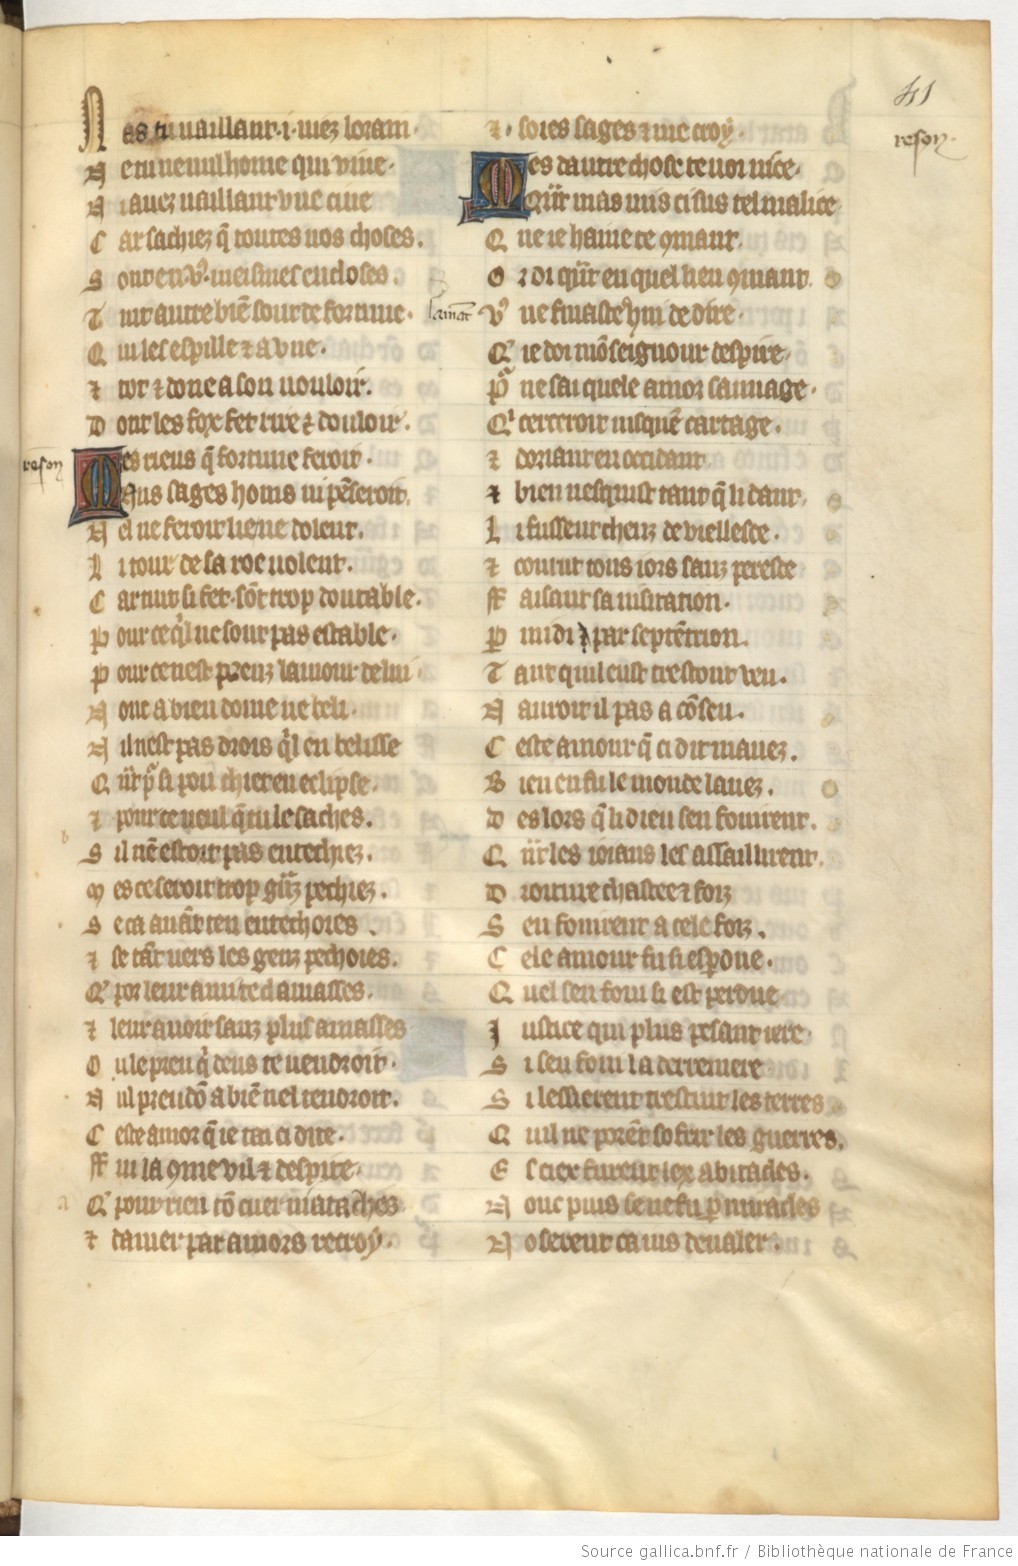 41
reson
N es tu vaillant .i. viez loram.
N e tu ne nul home qui vive.
N i avez vaillant une cive
C ar sachiez q̃ toutes vos choses.
S ont en vꝰ meismes encloses.
T uit autre biẽ sont de fortune.
Q ui les espille ⁊ aune.
⁊ tot ⁊ done a son vouloir.
D ont les fox fet rire ⁊ douloir.
reson
M es riens q̃ fortune feroit.
N us sages homs ni pẽseroit.
N el ne feroit lie ne dolent.
L i tour de sa roe volent.
C ar tuit si fet sõt trop doutable.
P our ce q̓l ne sont pas estable.
P our ce nest prenz lamour de lui.
N onc a bien dome ne beli.
N il nest pas drois q̓l en belisse
Q̃nt
⁊ pour ce veul q̃ tu le saches.
S il nẽ estoit pas entechiez.
M es ce seroit trop gñz pechiez.
S e ca avãt ten entechoies.
⁊ se tãt vers les genz pechoies.
Q̓ por leur ami te clamasses.
⁊ leur avoir sanz plus amasses
O u le preu q̓ deus te vendroit.
N ul preudõ a biẽ nel tendroit.
C este amor q̃ ie tai ci dite.
ff ui la ꝯme vil ⁊ despite.
⁊ damer par amors recroy.
⁊ soies sages ⁊ me croy.
M es dautre chose te voi nice.
Q̃nt mas mis ci sus tel malice
Q ue ie haine te ꝯmant.
O r di q̃nt en quel lieu ꝯmant.
lamant
Vꝰ ne finastes hui de dire.
Q̓ ie doi mõ seignour despire.
P̃ ne sai quele amor sauvage.
Q̓ cerceroit iusquẽ cartage.
⁊ doriant en occidant.
⁊ bien vesquist tant q̃ li dant.
L i fussent cheuz de viellesce.
⁊ courut tous iors sanz peresce
ff aisant sa visitation.
P̱ midi ⁊ par septẽtrion.
T ant quil eust trestout veu.
N auroit il pas a cõseu.
C este amour q̃ ci dit mavez.
B ien en fu le monde lavez.
D es lors q̃ li dieu sen fouirent.
Q̃nt les ioians les assaillirent.
D roiture chastee ⁊ foiz
S en fouirent a cele foiz.
C ele amour fu si espdue.
Q uel sen foui si est perdue
J ustice qui plus pesant iere.
S i sen foui la derreniere
S i lessierent trestuit les terres
Q uil ne porẽt sofrir les guerres.
E s ciex furent lex abitacles.
N onc puis se ne fu p̱ miracles
N oserent ca ius devaler.
Source gallica.bnf.fr / Bibliothèque nationale de France